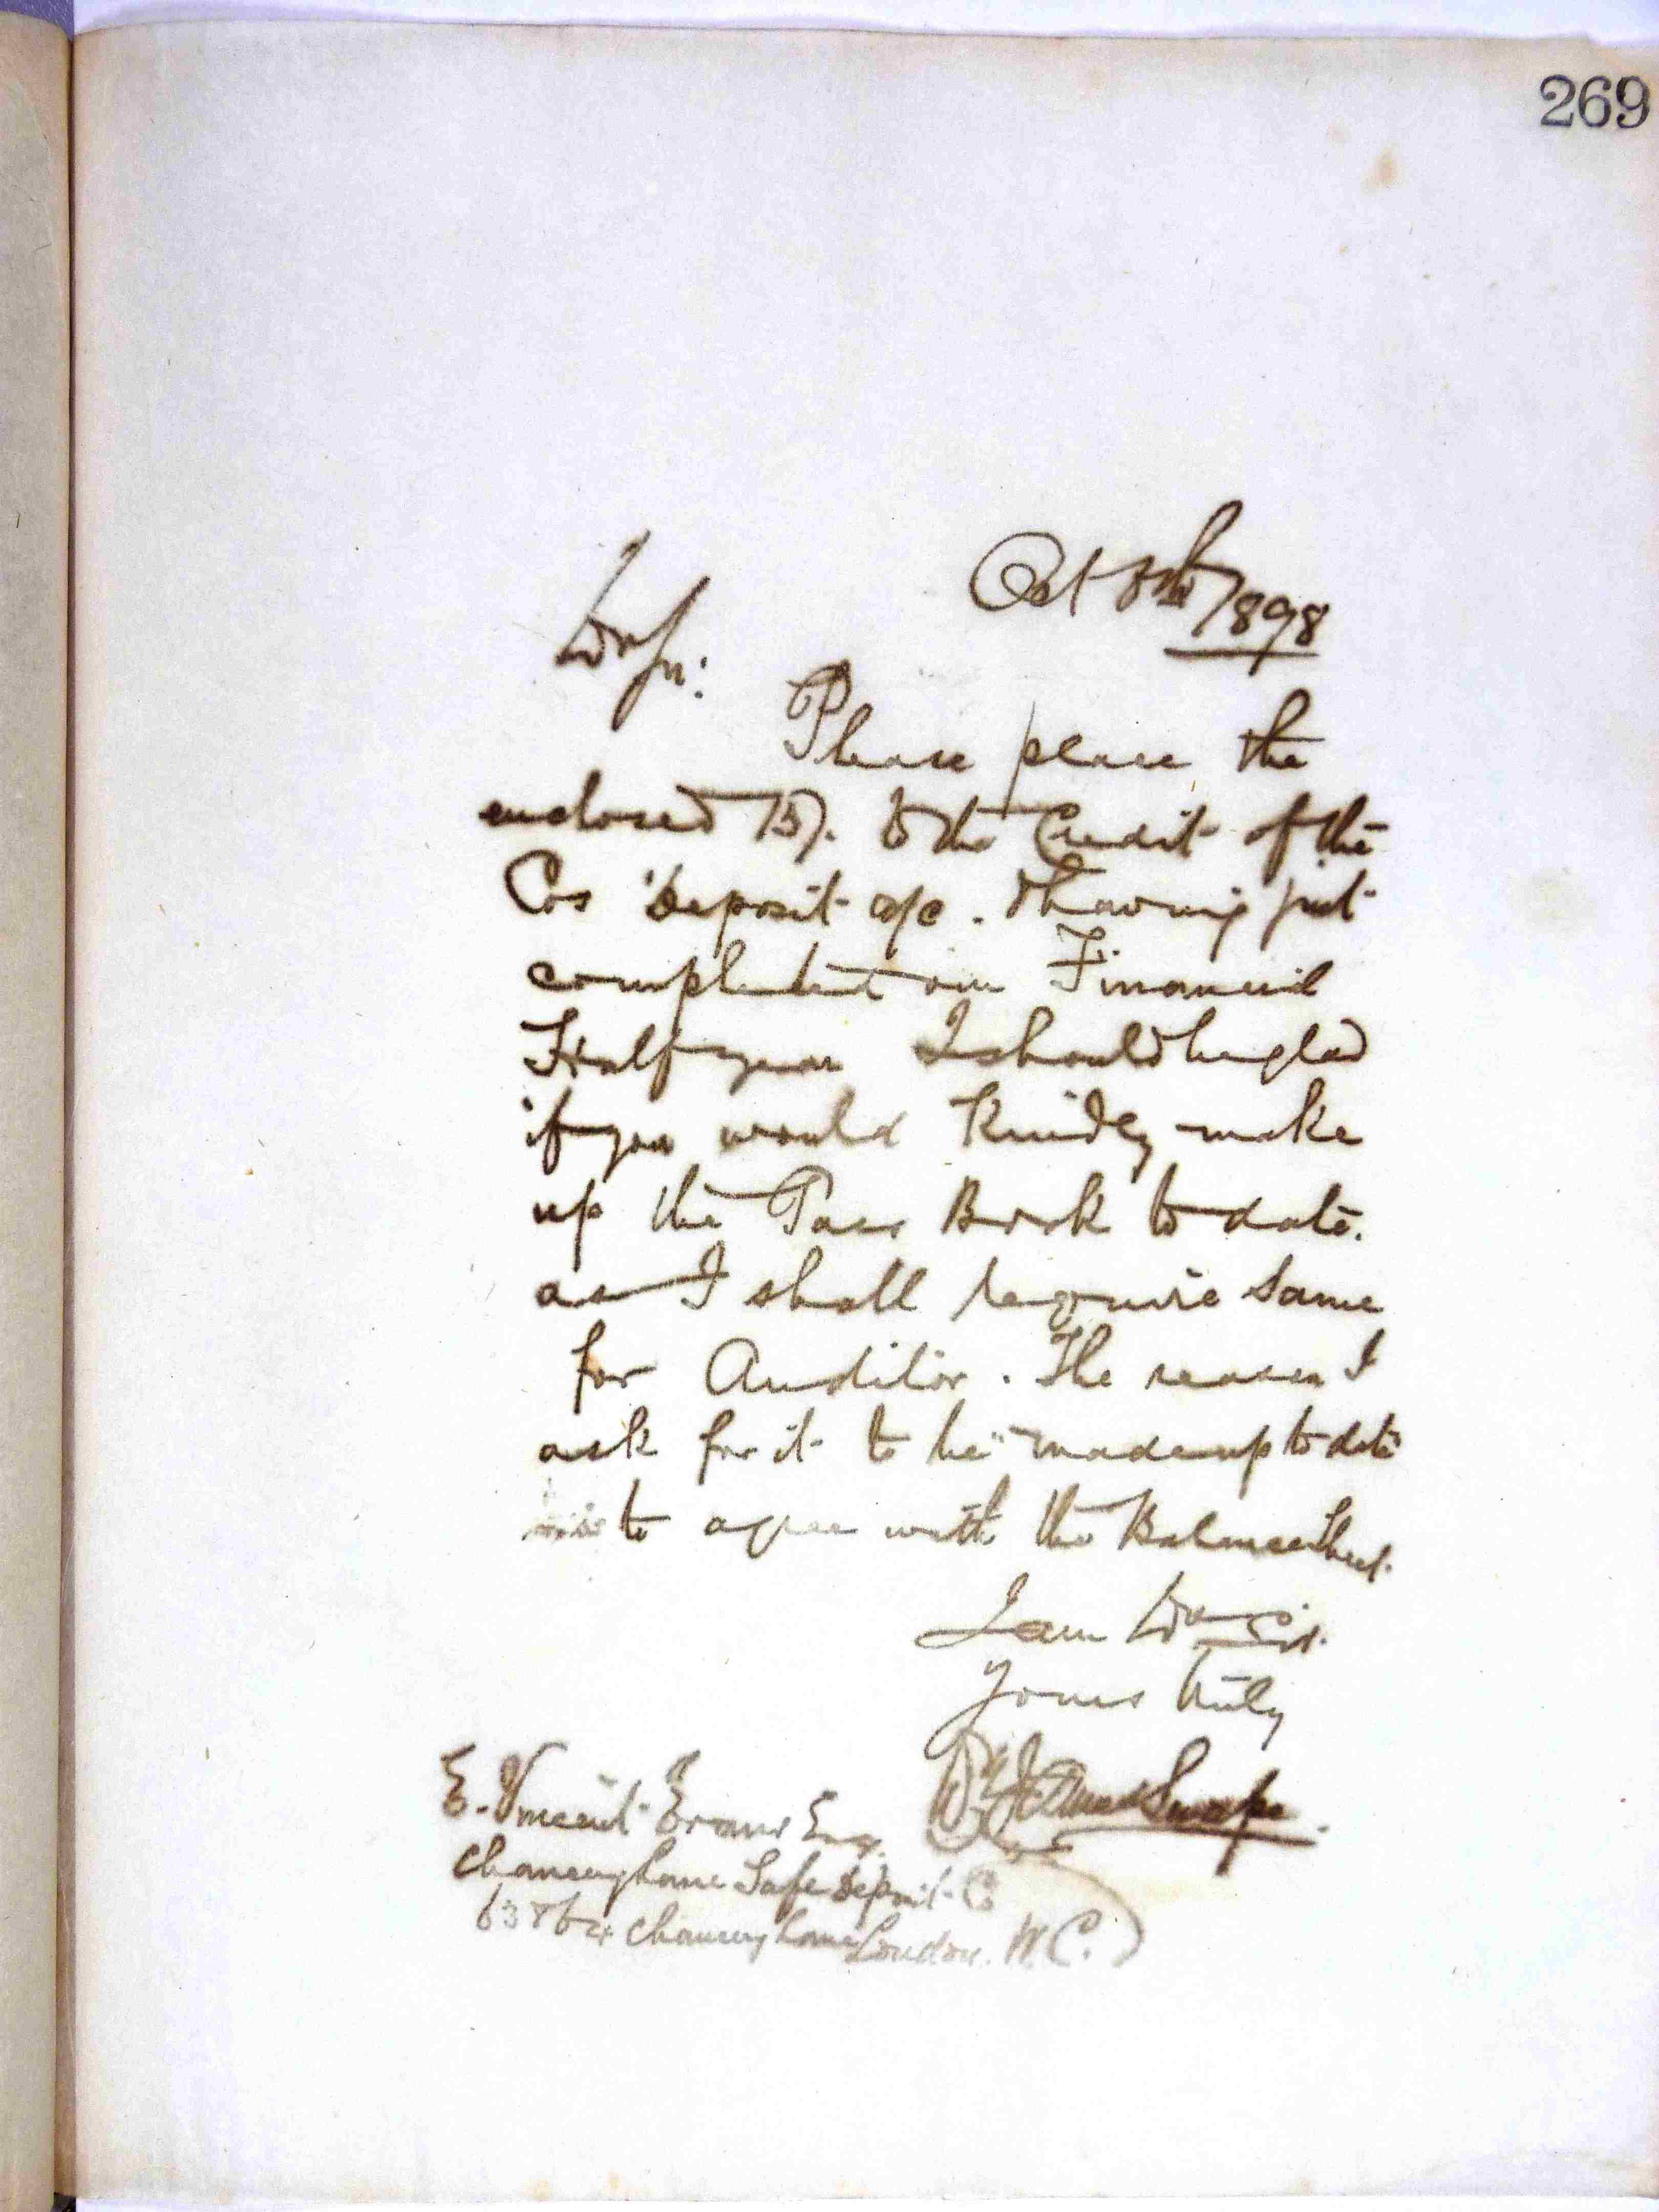 269
Oct 5th 1898
Dr Sir:
Please place the
enclosed to the Credit of the
Cos Deposit a/c. Having just
completed our Financial
Half year I should be glad
if you would Kindly make
up the Pass Book to date.
as I shall require same
for Auditor. The reason I
ask for it to be made up to date
is to agree with the Balance Sheet.
I am Dr Sir.
Yours truly
E. Vincent Evans Esq.
Chancery Lane Safe Deposit Co
63 & 64 Chancery Lane London. W.C.